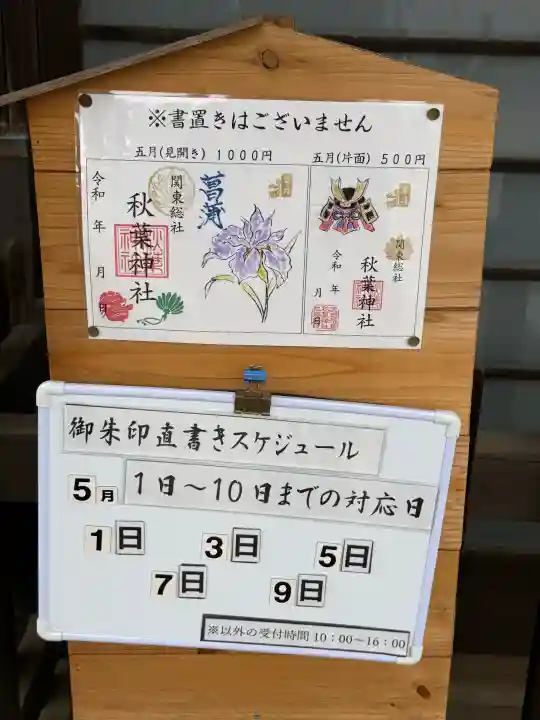 ※書置きはございません
五月(見開き) 1000円
五月(片面) 500円
関東総社
秋葉神社
令和 年 月
菖蒲
関東総社
秋葉神社
令和 年 月
御朱印直書きスケジュール
5月 1日～10日までの対応日
1日 3日 5日
7日 9日
※以外の受付時間10:00～16:00